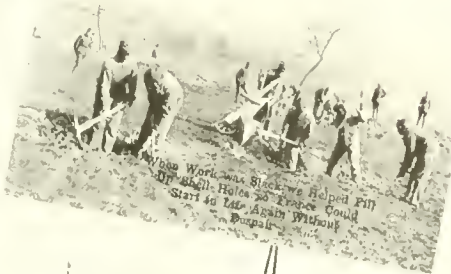 When Work was Slack, we Helped Fill
Up Shell Holes so France Could
Start in Life Again Without
Despair